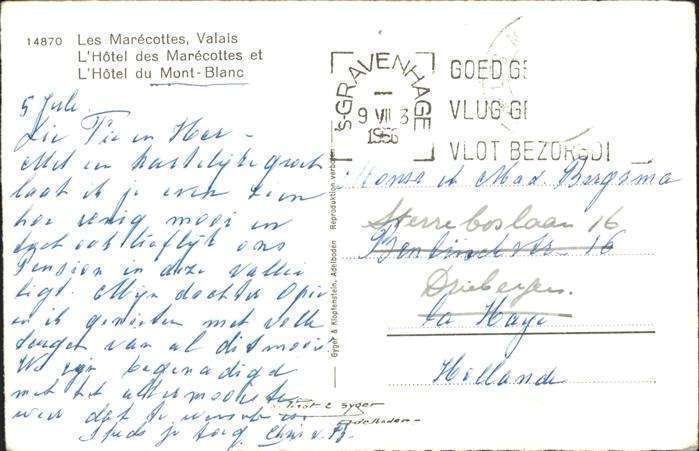 14870 Les Marécottes, Valais
L'Hôtel des Marécottes et
L'Hôtel du Mont-Blanc
5 Juli.
Lie Tie en Her –
Met een hartelijke groet
laat ik je even zien
hoe enig mooi en
ook lieflijk ons
Pension in deze vallei
ligt. Mijn dochter
en ik genieten met volle
teugen van al dit moois
We zijn begenadigd
met het allermooiste
weer dat te wensen is
Steeds je
Gyger & Klopfenstein, Adelboden Reproduktion verboten
Adelboden
'S-GRAVENHAGE
9 VII 3
1956
GOED GE
VLUG GE
VLOT BEZORGD!
Monsr et Mad. Bergsma
Sterreboslaan 16
16
Driebergen.
La Haye
Hollande